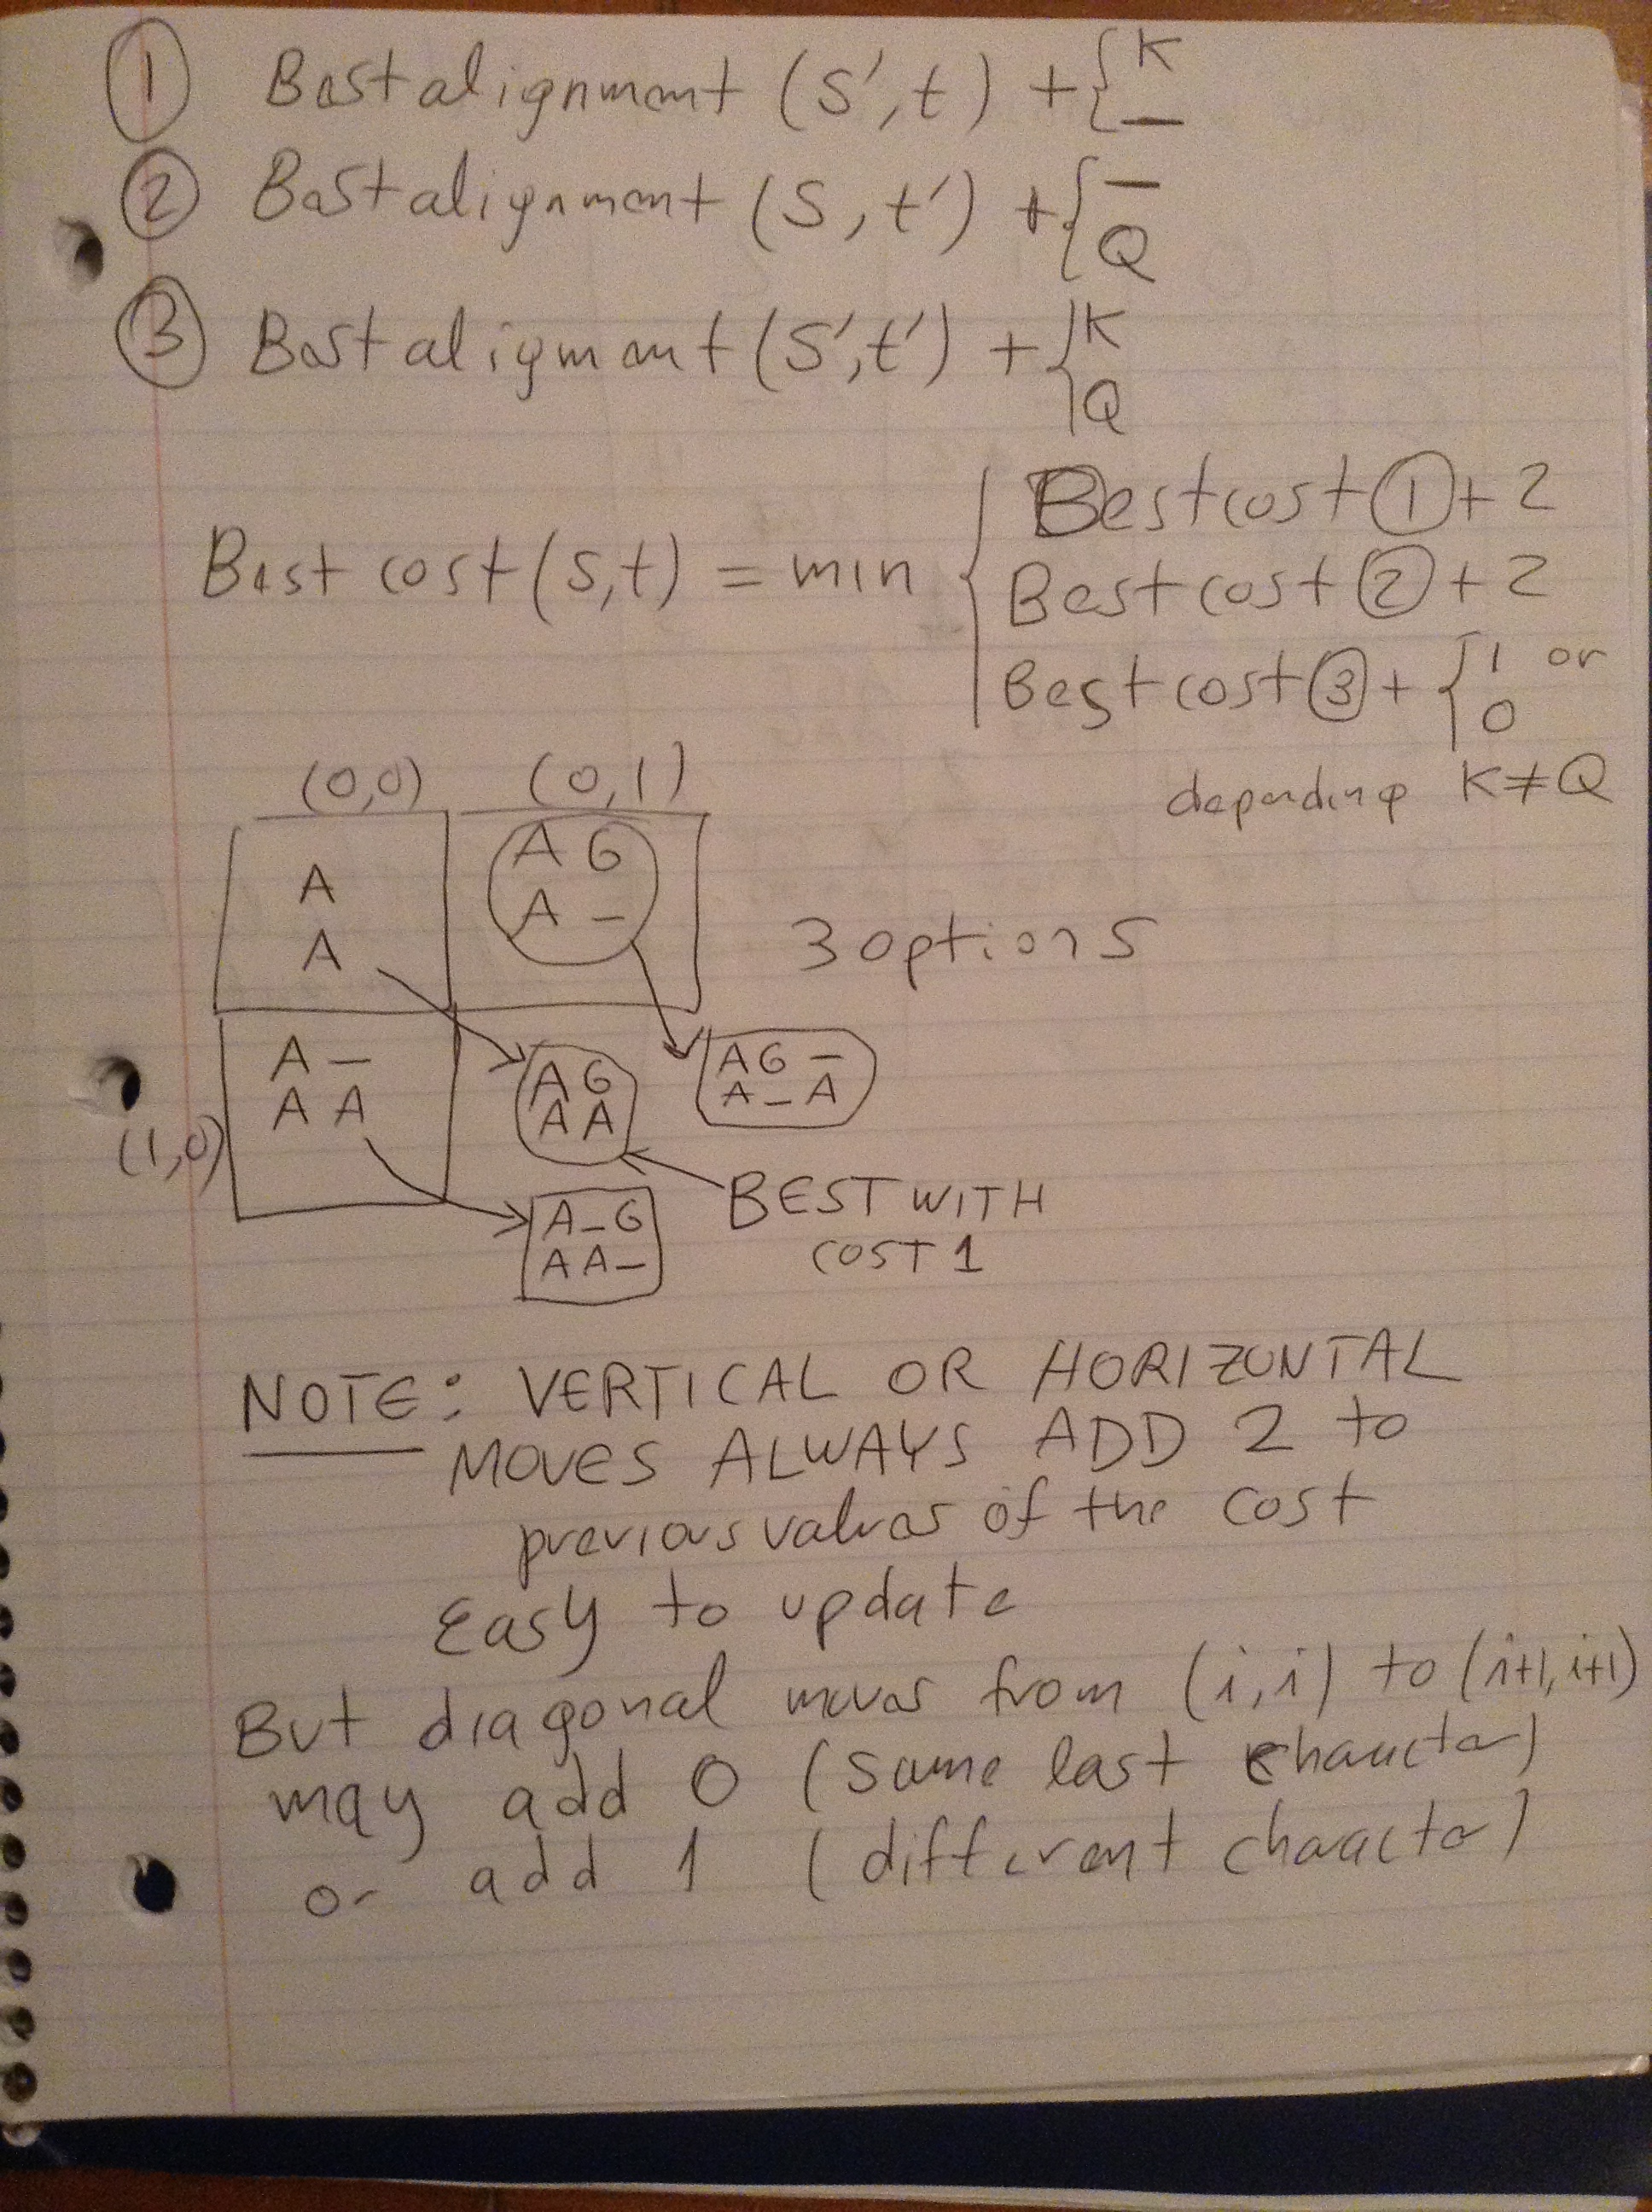 ① Best alignment (S', t) + { K
—
② Best alignment (S, t') + { —
Q
③ Best aligment (S', t') + { K
Q
Best cost (S, t) = min { Best cost ① + 2
Best cost ② + 2
Best cost ③ + { 1 or
0
depending K ≠ Q
(0,0) (0,1)
A
A
A G
A –
3 options
A –
A A
(1,0)
A G
A A
A G –
A – A
BEST WITH
COST 1
A – G
A A –
NOTE: VERTICAL OR HORIZONTAL
MOVES ALWAYS ADD 2 to
previous values of the cost
Easy to update
But diagonal moves from (i,i) to (i+1,i+1)
may add 0 (same last character)
or add 1 (different character)